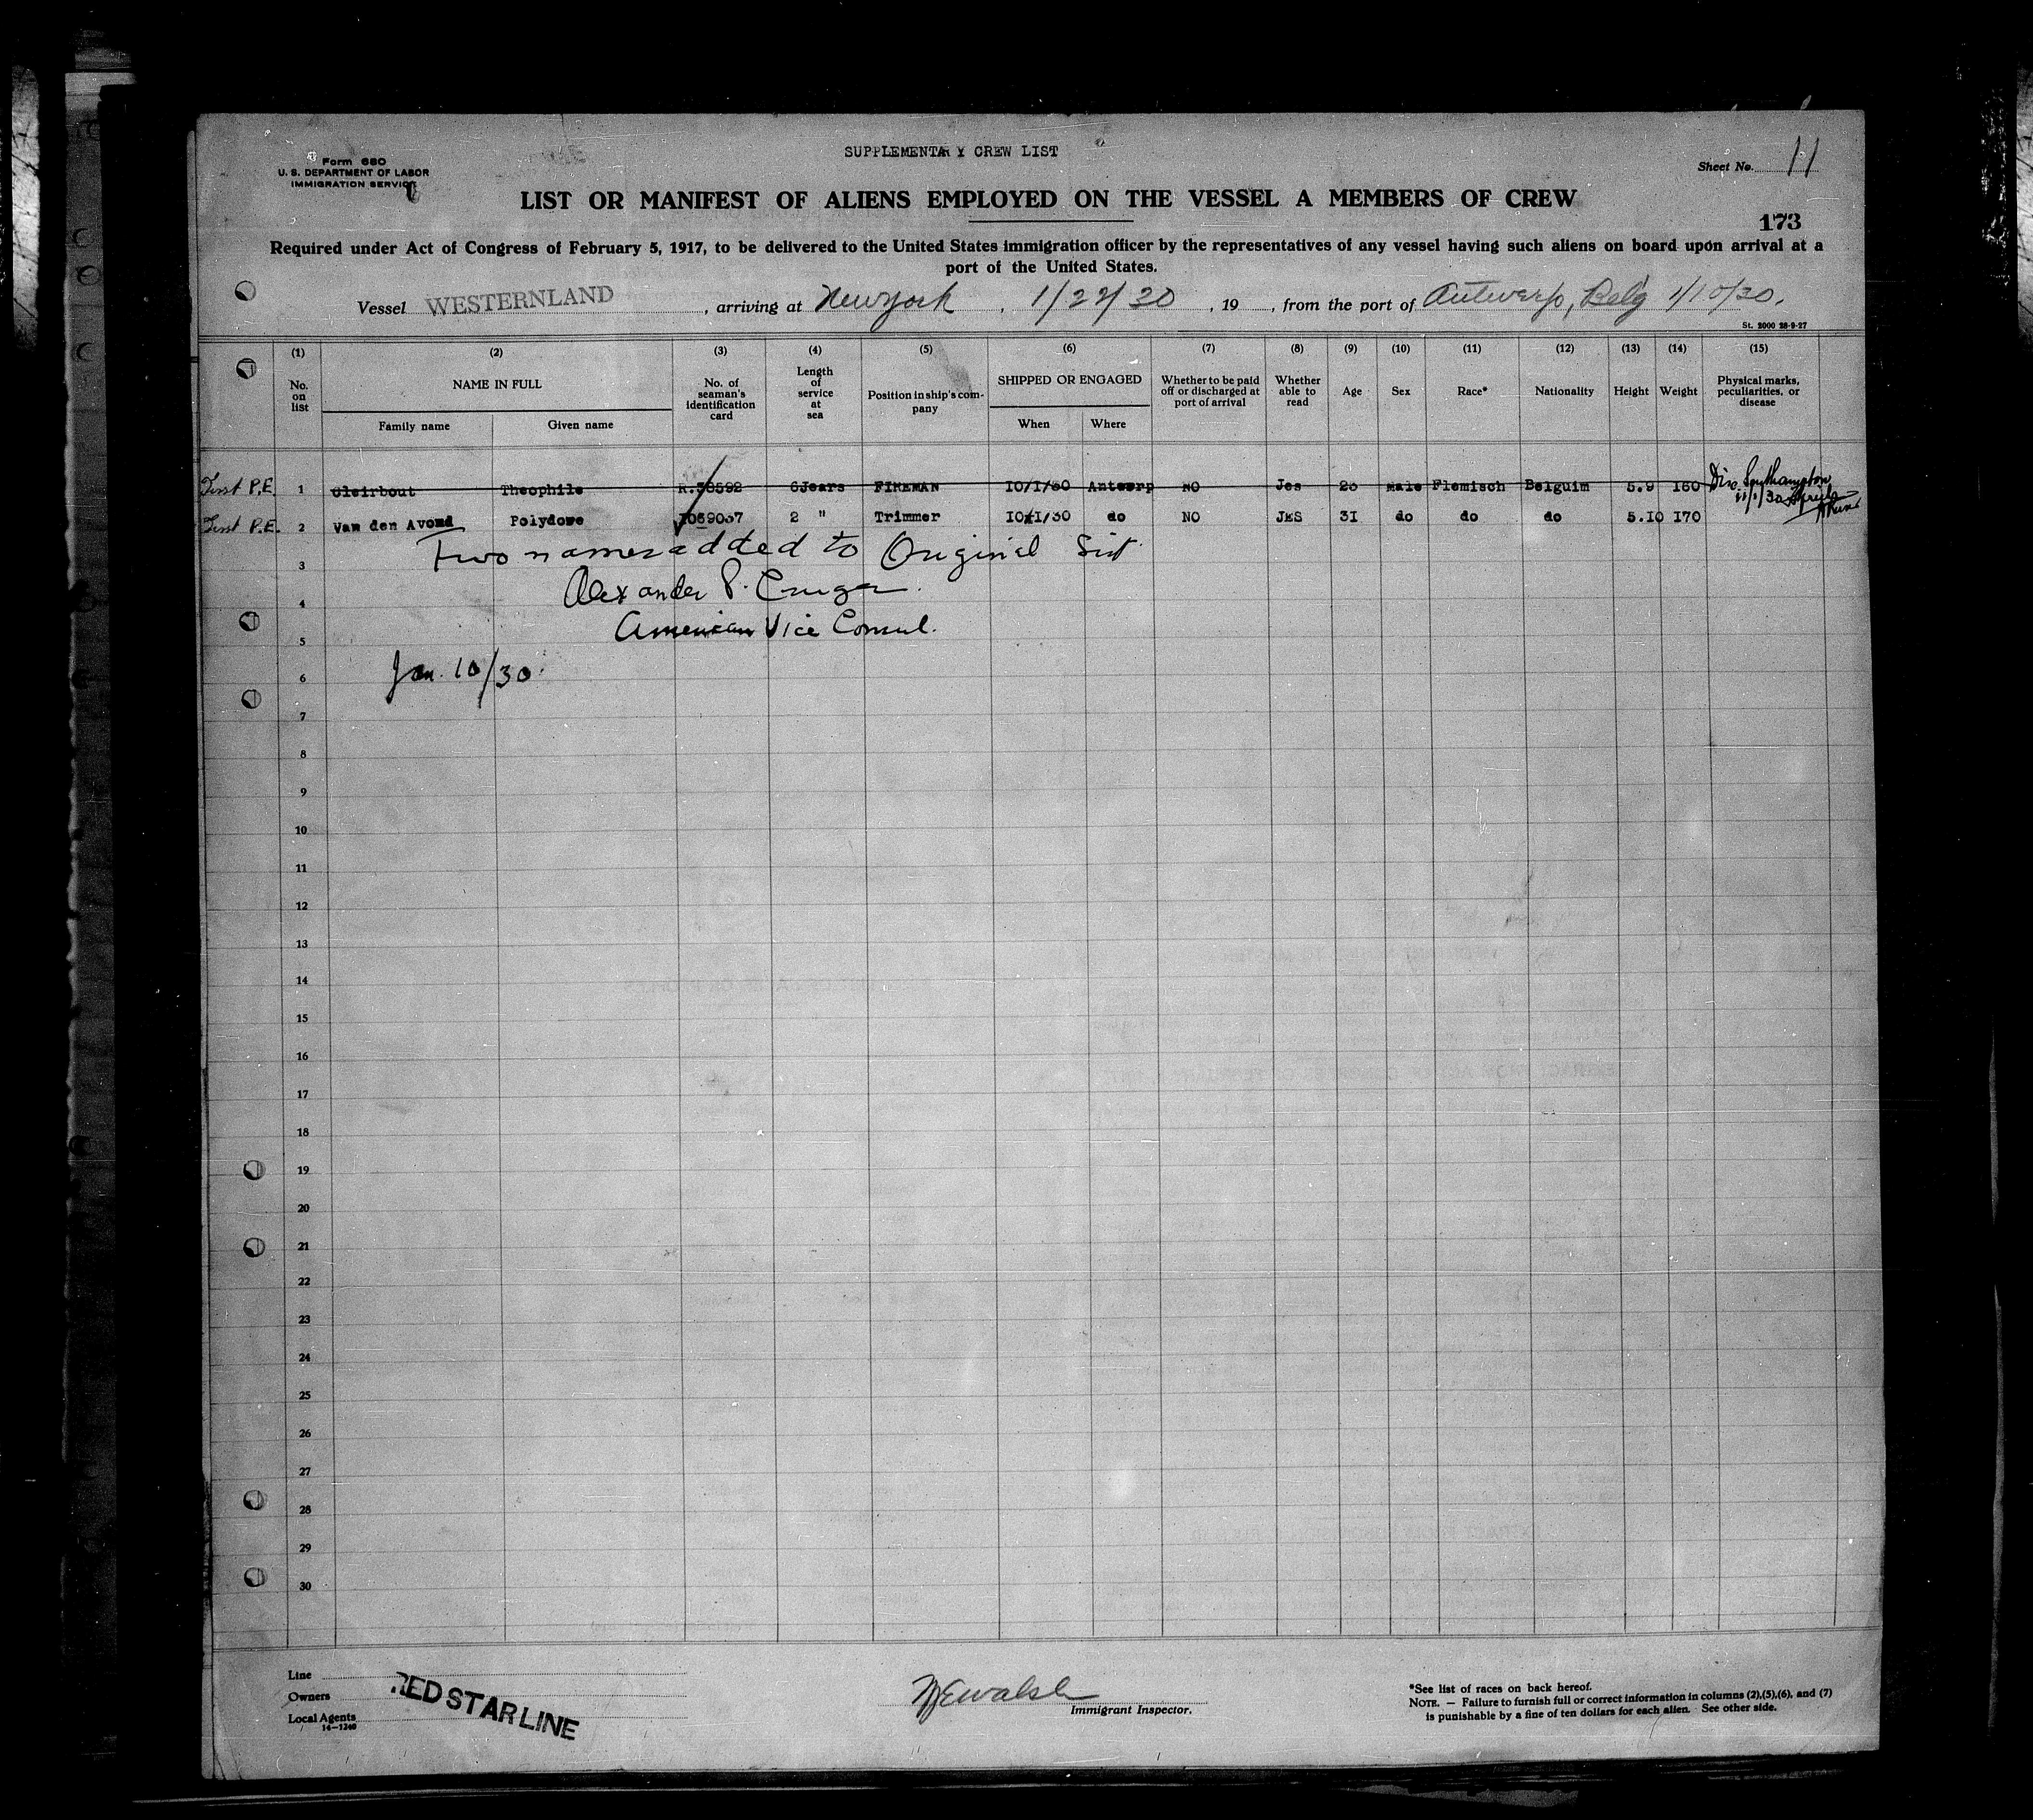 SUPPLEMENTARY CREW LIST
Form 680
U. S. DEPARTMENT OF LABOR
IMMIGRATION SERVICE
Sheet No. 11
LIST OR MANIFEST OF ALIENS EMPLOYED ON THE VESSEL A MEMBERS OF CREW
173
Required under Act of Congress of February 5, 1917, to be delivered to the United States immigration officer by the representatives of any vessel having such aliens on board upon arrival at a
port of the United States.
Vessel WESTERNLAND, arriving at New York, 1/22/30, 19, from the port of Antwerp, Belg 1/10/30.
St. 2000 28-9-27
(1) (2) (3) (4) (5) (6) (7) (8) (9) (10) (11) (12) (13) (14) (15)
No. on list NAME IN FULL Family name Given name No. of seaman's identification card Length of service at sea Position in ship's company SHIPPED OR ENGAGED When Where Whether to be paid off or discharged at port of arrival Whether able to read Age Sex Race* Nationality Height Weight Physical marks, peculiarities, or disease
First P.E. 1 Cleirbout Theophile R.38592 6Jears FIREMAN IO/I/30 Antwerp NO Jes 26 Male Flemisch Belguim 5.9 160 Southampton
First P.E. 2 Van den Avond Polydore 1069037 2 " Trimmer IO/I/30 do NO JES 3I do do do 5.IO I70
Two names added to Original List
3
Alexander P. Cruger
4
American Vice Consul.
5
Jan. 10/30.
6
7
8
9
10
11
12
13
14
15
16
17
18
19
20
21
22
23
24
25
26
27
28
29
30
Line
Owners RED STAR LINE
Local Agents
14—1240
Walsh
Immigrant Inspector.
*See list of races on back hereof.
NOTE. — Failure to furnish full or correct information in columns (2),(5),(6), and (7)
is punishable by a fine of ten dollars for each alien. See other side.